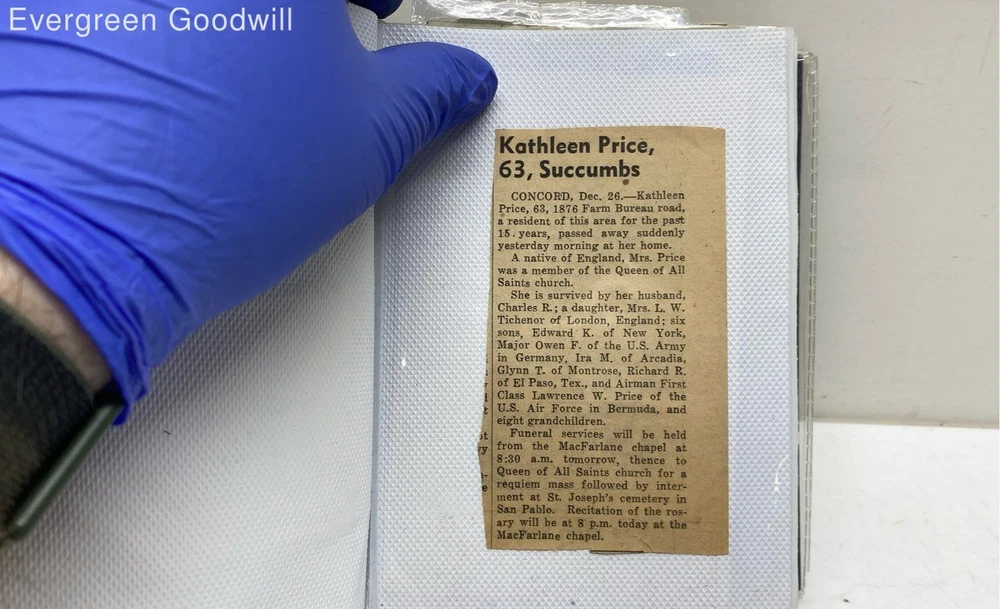 Evergreen Goodwill
Kathleen Price,
63, Succumbs
CONCORD, Dec. 26.—Kathleen
Price, 63, 1876 Farm Bureau road,
a resident of this area for the past
15 years, passed away suddenly
yesterday morning at her home.
A native of England, Mrs. Price
was a member of the Queen of All
Saints church.
She is survived by her husband,
Charles R.; a daughter, Mrs. L. W.
Tichenor of London, England; six
sons, Edward K. of New York,
Major Owen F. of the U.S. Army
in Germany, Ira M. of Arcadia,
Glynn T. of Montrose, Richard R.
of El Paso, Tex., and Airman First
Class Lawrence W. Price of the
U.S. Air Force in Bermuda, and
eight grandchildren.
Funeral services will be held
from the MacFarlane chapel at
8:30 a.m. tomorrow, thence to
Queen of All Saints church for a
requiem mass followed by inter-
ment at St. Joseph's cemetery in
San Pablo. Recitation of the ros-
ary will be at 8 p.m. today at the
MacFarlane chapel.